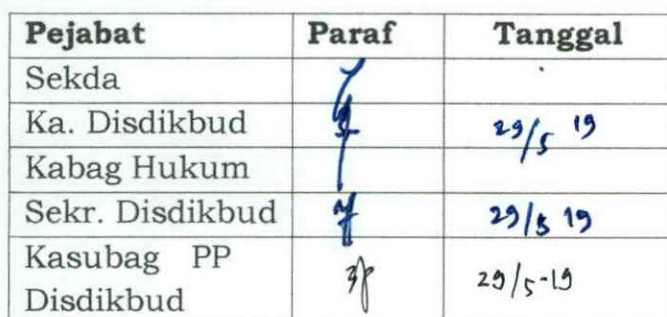 Pejabat Paraf Tanggal
Sekda
Ka. Disdikbud 29/5 19
Kabag Hukum
Sekr. Disdikbud 29/5 19
Kasubag PP
Disdikbud 29/5-19